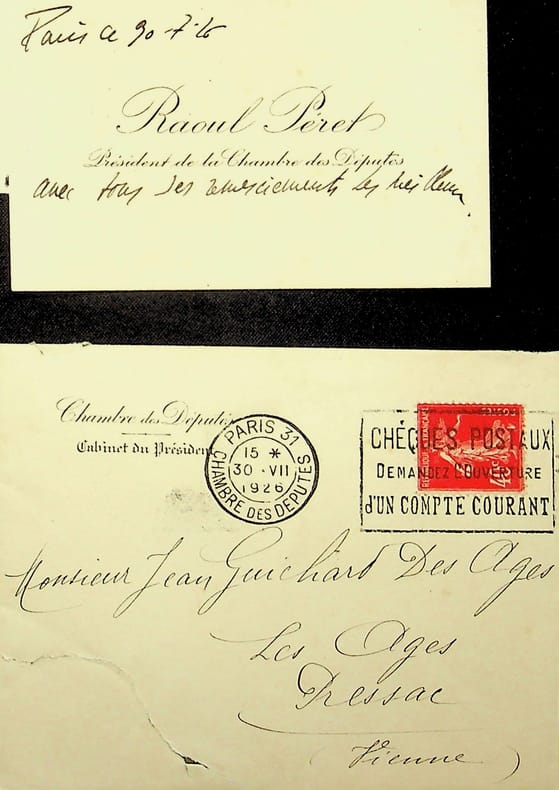 Paris ce 30-7-26
Raoul Péret
Président de la Chambre des Députés
avec tous ses remerciements les meilleurs.
Chambre des Députés
Cabinet du Président
PARIS 31
15 *
30 · VII
1926
CHAMBRE DES DEPUTES
CHÉQUES POSTAUX
DEMANDEZ L'OUVERTURE
d'UN COMPTE COURANT
Monsieur Jean Guichard Des Ages
Les Ages
Pressac
(Vienne)